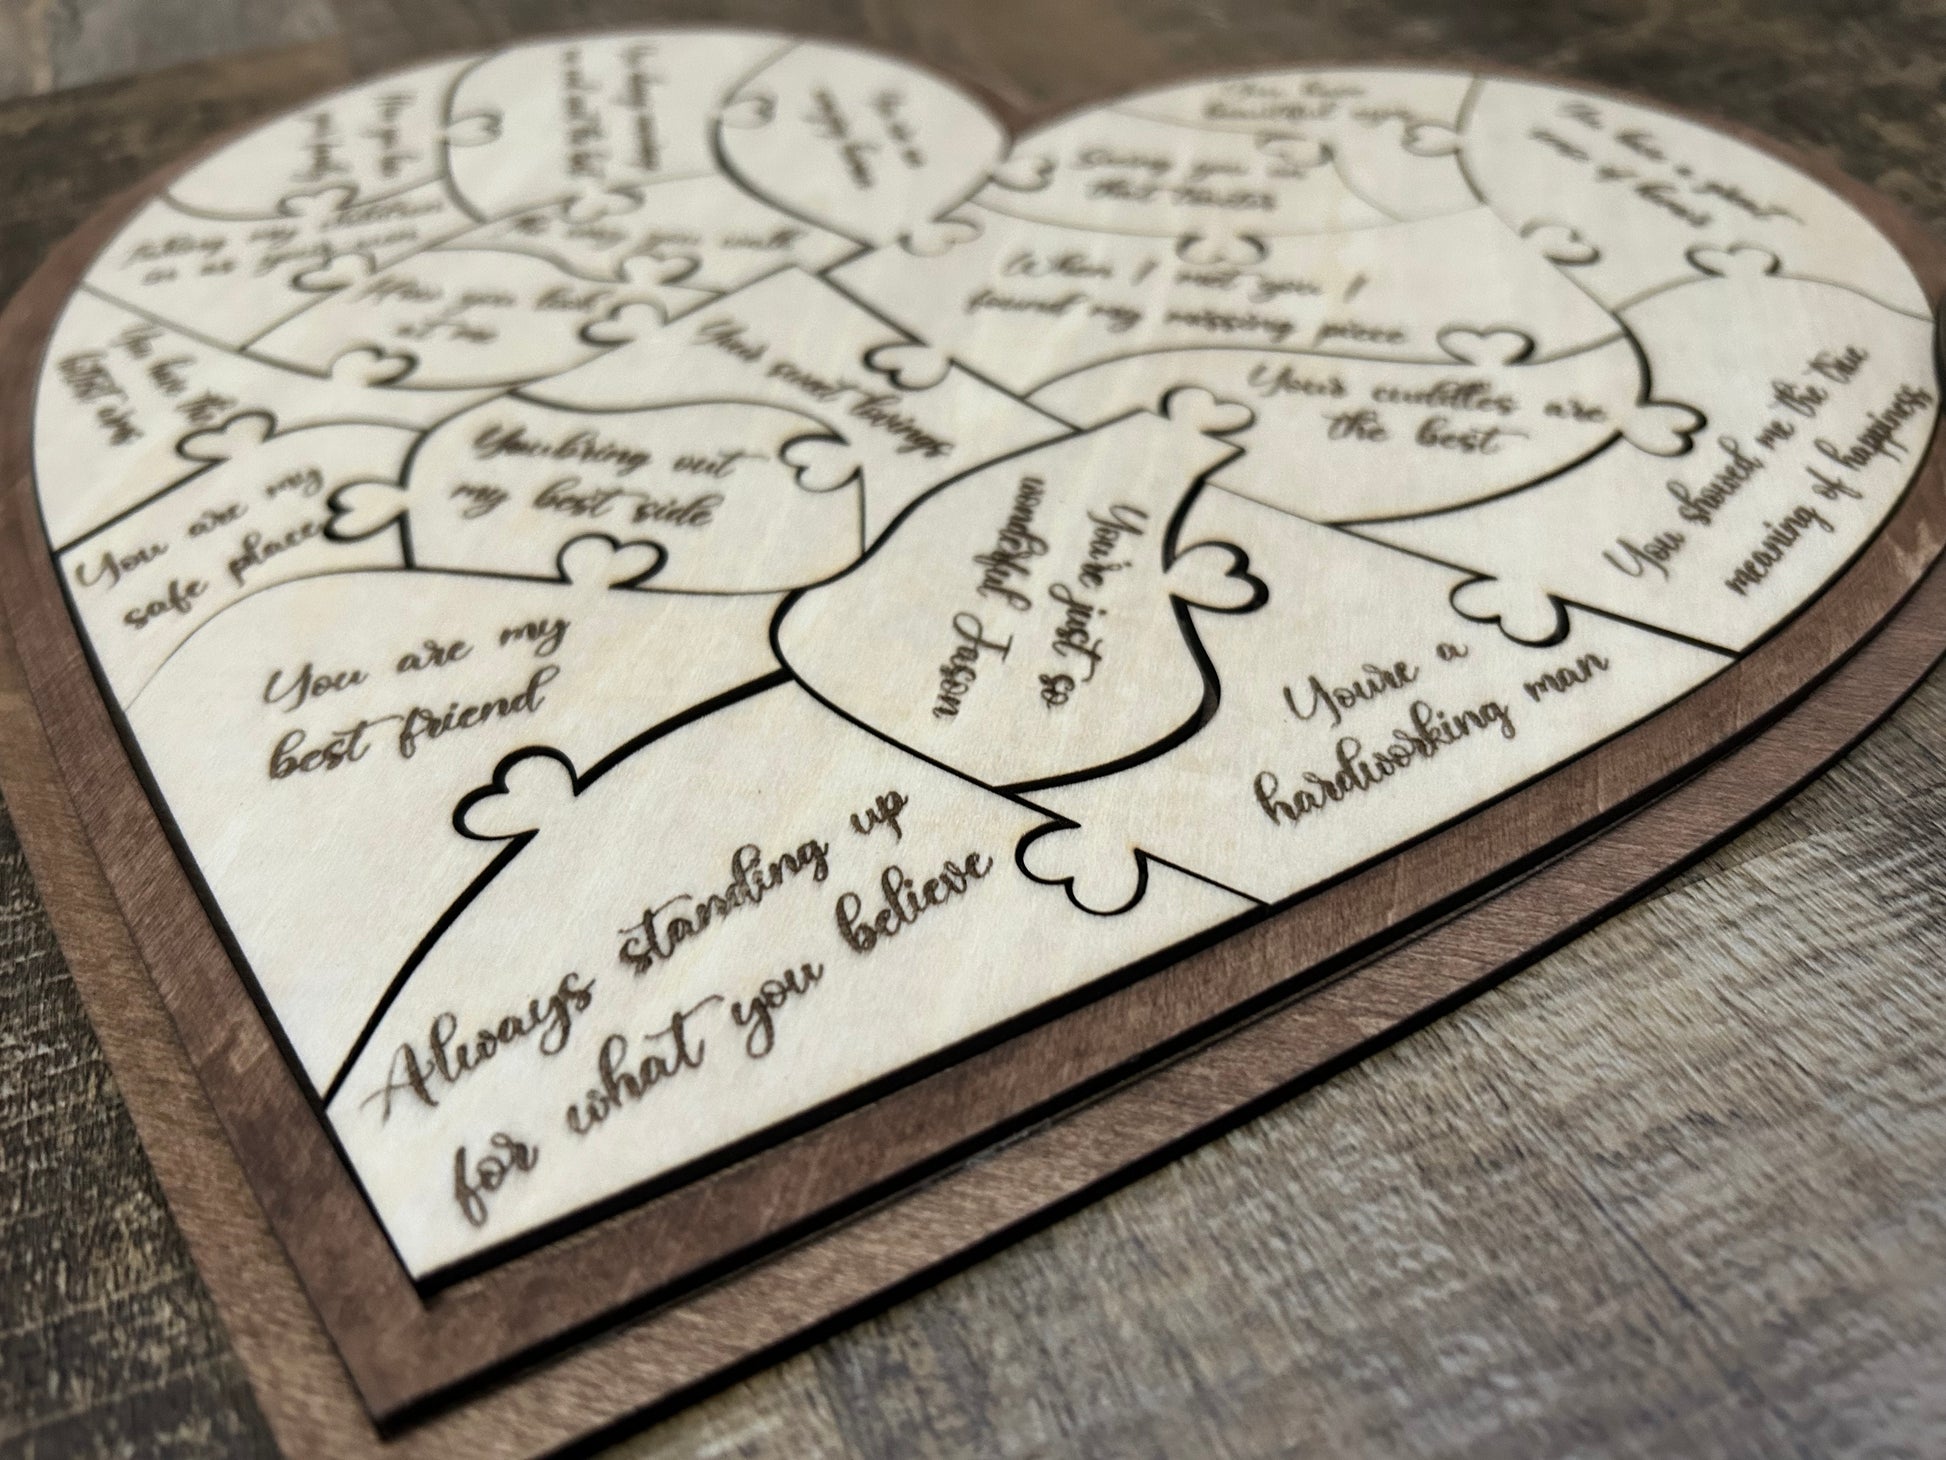 How you love
your family
You always
You are so
You have
beautiful eyes
You have a great
sense of humor
Seeing you in
that
Putting my
The way you walk
How you look
at me
When I met you I
found my missing piece
You have the
Your sweet
Your cuddles are
the best
You showed me the true
meaning of happiness
You bring out
my best side
You are my
safe place
You're just so
wonderful Jason
You are my
best friend
You're a
hardworking man
Always standing up
for what you believe